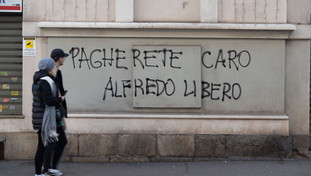 PAGHERETE CARO
ALFREDO LIBERO